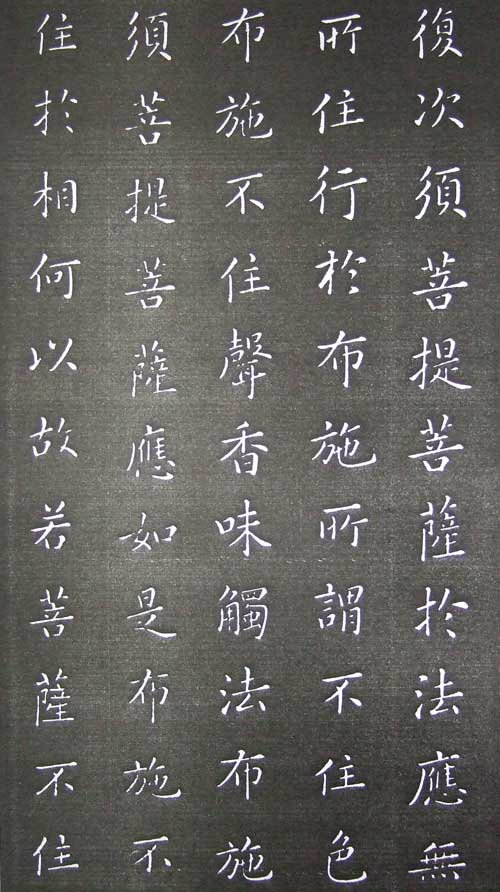 復次須菩提菩薩於法應無
所住行於布施所謂不住色
布施不住聲香味觸法布施
須菩提菩薩應如是布施不
住於相何以故若菩薩不住